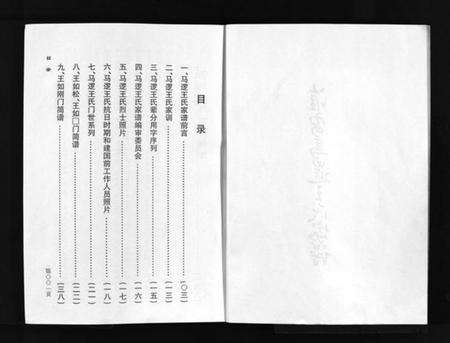 目录
一、马逻王氏家谱前言……(〇三)
二、马逻王氏家训……(一三)
三、马逻王氏辈分用字序列……(一五)
四、马逻王氏家谱编审委员会……(一六)
五、马逻王氏烈士照片……(一七)
六、马逻王氏抗日时期和建国前工作人员照片……(一八)
七、马逻王氏门世系列……(二一)
八、王如松、王如□门简谱……(二二)
九、王如刚门简谱……(三八)
目录
第〇〇一页